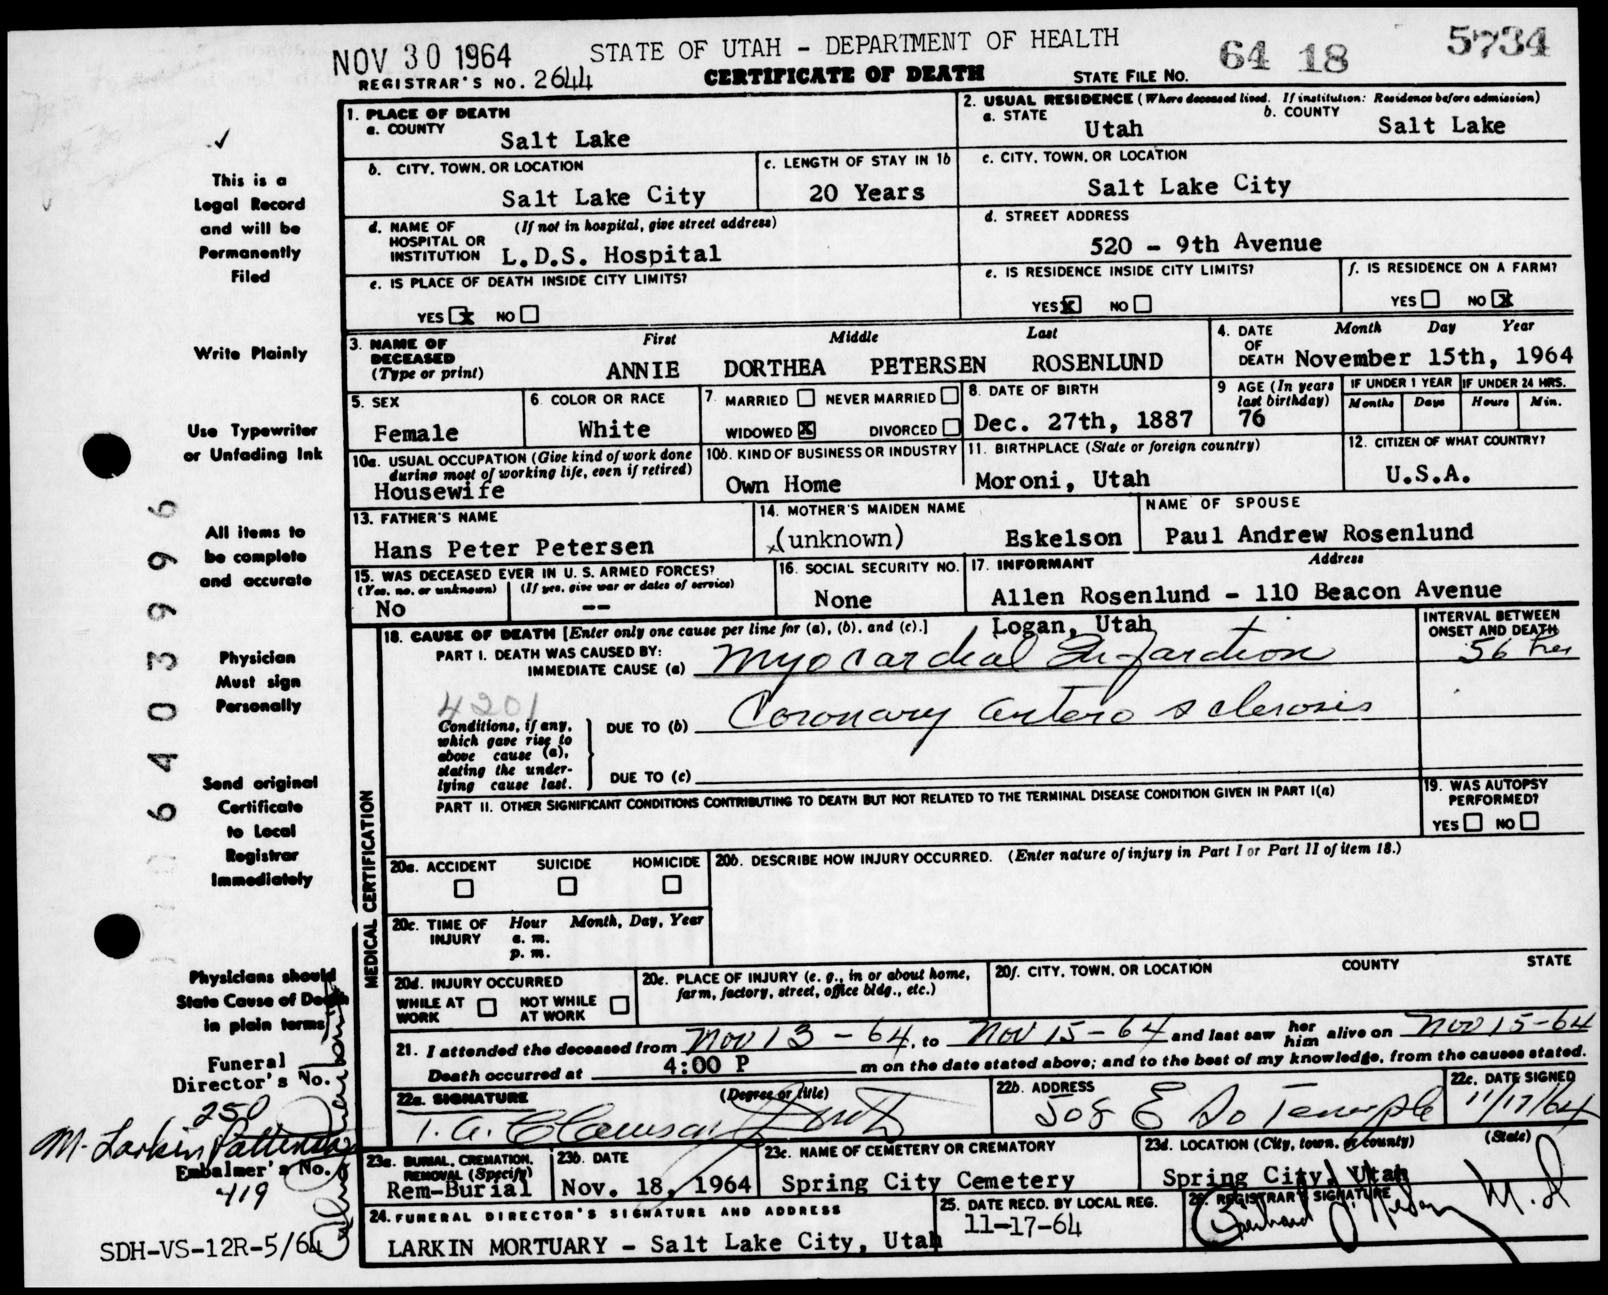 NOV 30 1964
STATE OF UTAH - DEPARTMENT OF HEALTH
64 18 5734
REGISTRAR'S NO. 2644
CERTIFICATE OF DEATH
STATE FILE NO.
1. PLACE OF DEATH
a. COUNTY
Salt Lake
2. USUAL RESIDENCE (Where deceased lived. If institution: Residence before admission)
a. STATE
Utah
b. COUNTY
Salt Lake
b. CITY, TOWN, OR LOCATION
Salt Lake City
c. LENGTH OF STAY IN 1b
20 Years
c. CITY, TOWN, OR LOCATION
Salt Lake City
d. NAME OF HOSPITAL OR INSTITUTION
(If not in hospital, give street address)
L.D.S. Hospital
d. STREET ADDRESS
520 - 9th Avenue
e. IS PLACE OF DEATH INSIDE CITY LIMITS?
YES x NO
e. IS RESIDENCE INSIDE CITY LIMITS?
YES x NO
f. IS RESIDENCE ON A FARM?
YES NO x
3. NAME OF DECEASED (Type or print)
First Middle Last
ANNIE DORTHEA PETERSEN ROSENLUND
4. DATE OF DEATH
Month Day Year
November 15th, 1964
5. SEX
Female
6. COLOR OR RACE
White
7. MARRIED NEVER MARRIED
WIDOWED x DIVORCED
8. DATE OF BIRTH
Dec. 27th, 1887
9 AGE (In years last birthday)
76
IF UNDER 1 YEAR
Months Days
IF UNDER 24 HRS.
Hours Min.
10a. USUAL OCCUPATION (Give kind of work done during most of working life, even if retired)
Housewife
10b. KIND OF BUSINESS OR INDUSTRY
Own Home
11. BIRTHPLACE (State or foreign country)
Moroni, Utah
12. CITIZEN OF WHAT COUNTRY?
U.S.A.
13. FATHER'S NAME
Hans Peter Petersen
14. MOTHER'S MAIDEN NAME
x(unknown) Eskelson
NAME OF SPOUSE
Paul Andrew Rosenlund
15. WAS DECEASED EVER IN U. S. ARMED FORCES?
(Yes, no, or unknown) (If yes, give war or dates of service)
No --
16. SOCIAL SECURITY NO.
None
17. INFORMANT Address
Allen Rosenlund - 110 Beacon Avenue
Logan, Utah
MEDICAL CERTIFICATION
18. CAUSE OF DEATH [Enter only one cause per line for (a), (b), and (c).]
INTERVAL BETWEEN ONSET AND DEATH
PART I. DEATH WAS CAUSED BY:
IMMEDIATE CAUSE (a) Myocardial Infarction
56 hrs
4201
Conditions, if any, which gave rise to above cause (a), stating the underlying cause last.
DUE TO (b) Coronary arterosclerosis
DUE TO (c)
PART II. OTHER SIGNIFICANT CONDITIONS CONTRIBUTING TO DEATH BUT NOT RELATED TO THE TERMINAL DISEASE CONDITION GIVEN IN PART I(a)
19. WAS AUTOPSY PERFORMED?
YES NO
20a. ACCIDENT SUICIDE HOMICIDE
20b. DESCRIBE HOW INJURY OCCURRED. (Enter nature of injury in Part I or Part II of item 18.)
20c. TIME OF INJURY
Hour Month, Day, Year
a. m.
p. m.
20d. INJURY OCCURRED
WHILE AT WORK NOT WHILE AT WORK
20e. PLACE OF INJURY (e. g., in or about home, farm, factory, street, office bldg., etc.)
20f. CITY, TOWN, OR LOCATION COUNTY STATE
21. I attended the deceased from Nov 13 - 64, to Nov 15-64 and last saw her him alive on Nov 15-64
Death occurred at 4:00 P m on the date stated above; and to the best of my knowledge, from the causes stated.
22a. SIGNATURE (Degree or title)
T. A. Clawson
22b. ADDRESS
508 E So Temple
22c. DATE SIGNED
11/17/64
23a. BURIAL, CREMATION, REMOVAL (Specify)
Rem-Burial
23b. DATE
Nov. 18, 1964
23c. NAME OF CEMETERY OR CREMATORY
Spring City Cemetery
23d. LOCATION (City, town, or county) (State)
Spring City, Utah
24. FUNERAL DIRECTOR'S SIGNATURE AND ADDRESS
LARKIN MORTUARY - Salt Lake City, Utah
25. DATE RECD. BY LOCAL REG.
11-17-64
26. REGISTRAR'S SIGNATURE
M.D
This is a
Legal Record
and will be
Permanently
Filed
Write Plainly
Use Typewriter
or Unfading Ink
All items to
be complete
and accurate
Physician
Must sign
Personally
Send original
Certificate
to Local
Registrar
Immediately
Physicians should
State Cause of Death
in plain terms
Funeral
Director's No.
250
M. Larkin
Embalmer's No.
419
SDH-VS-12R-5/64
6403996